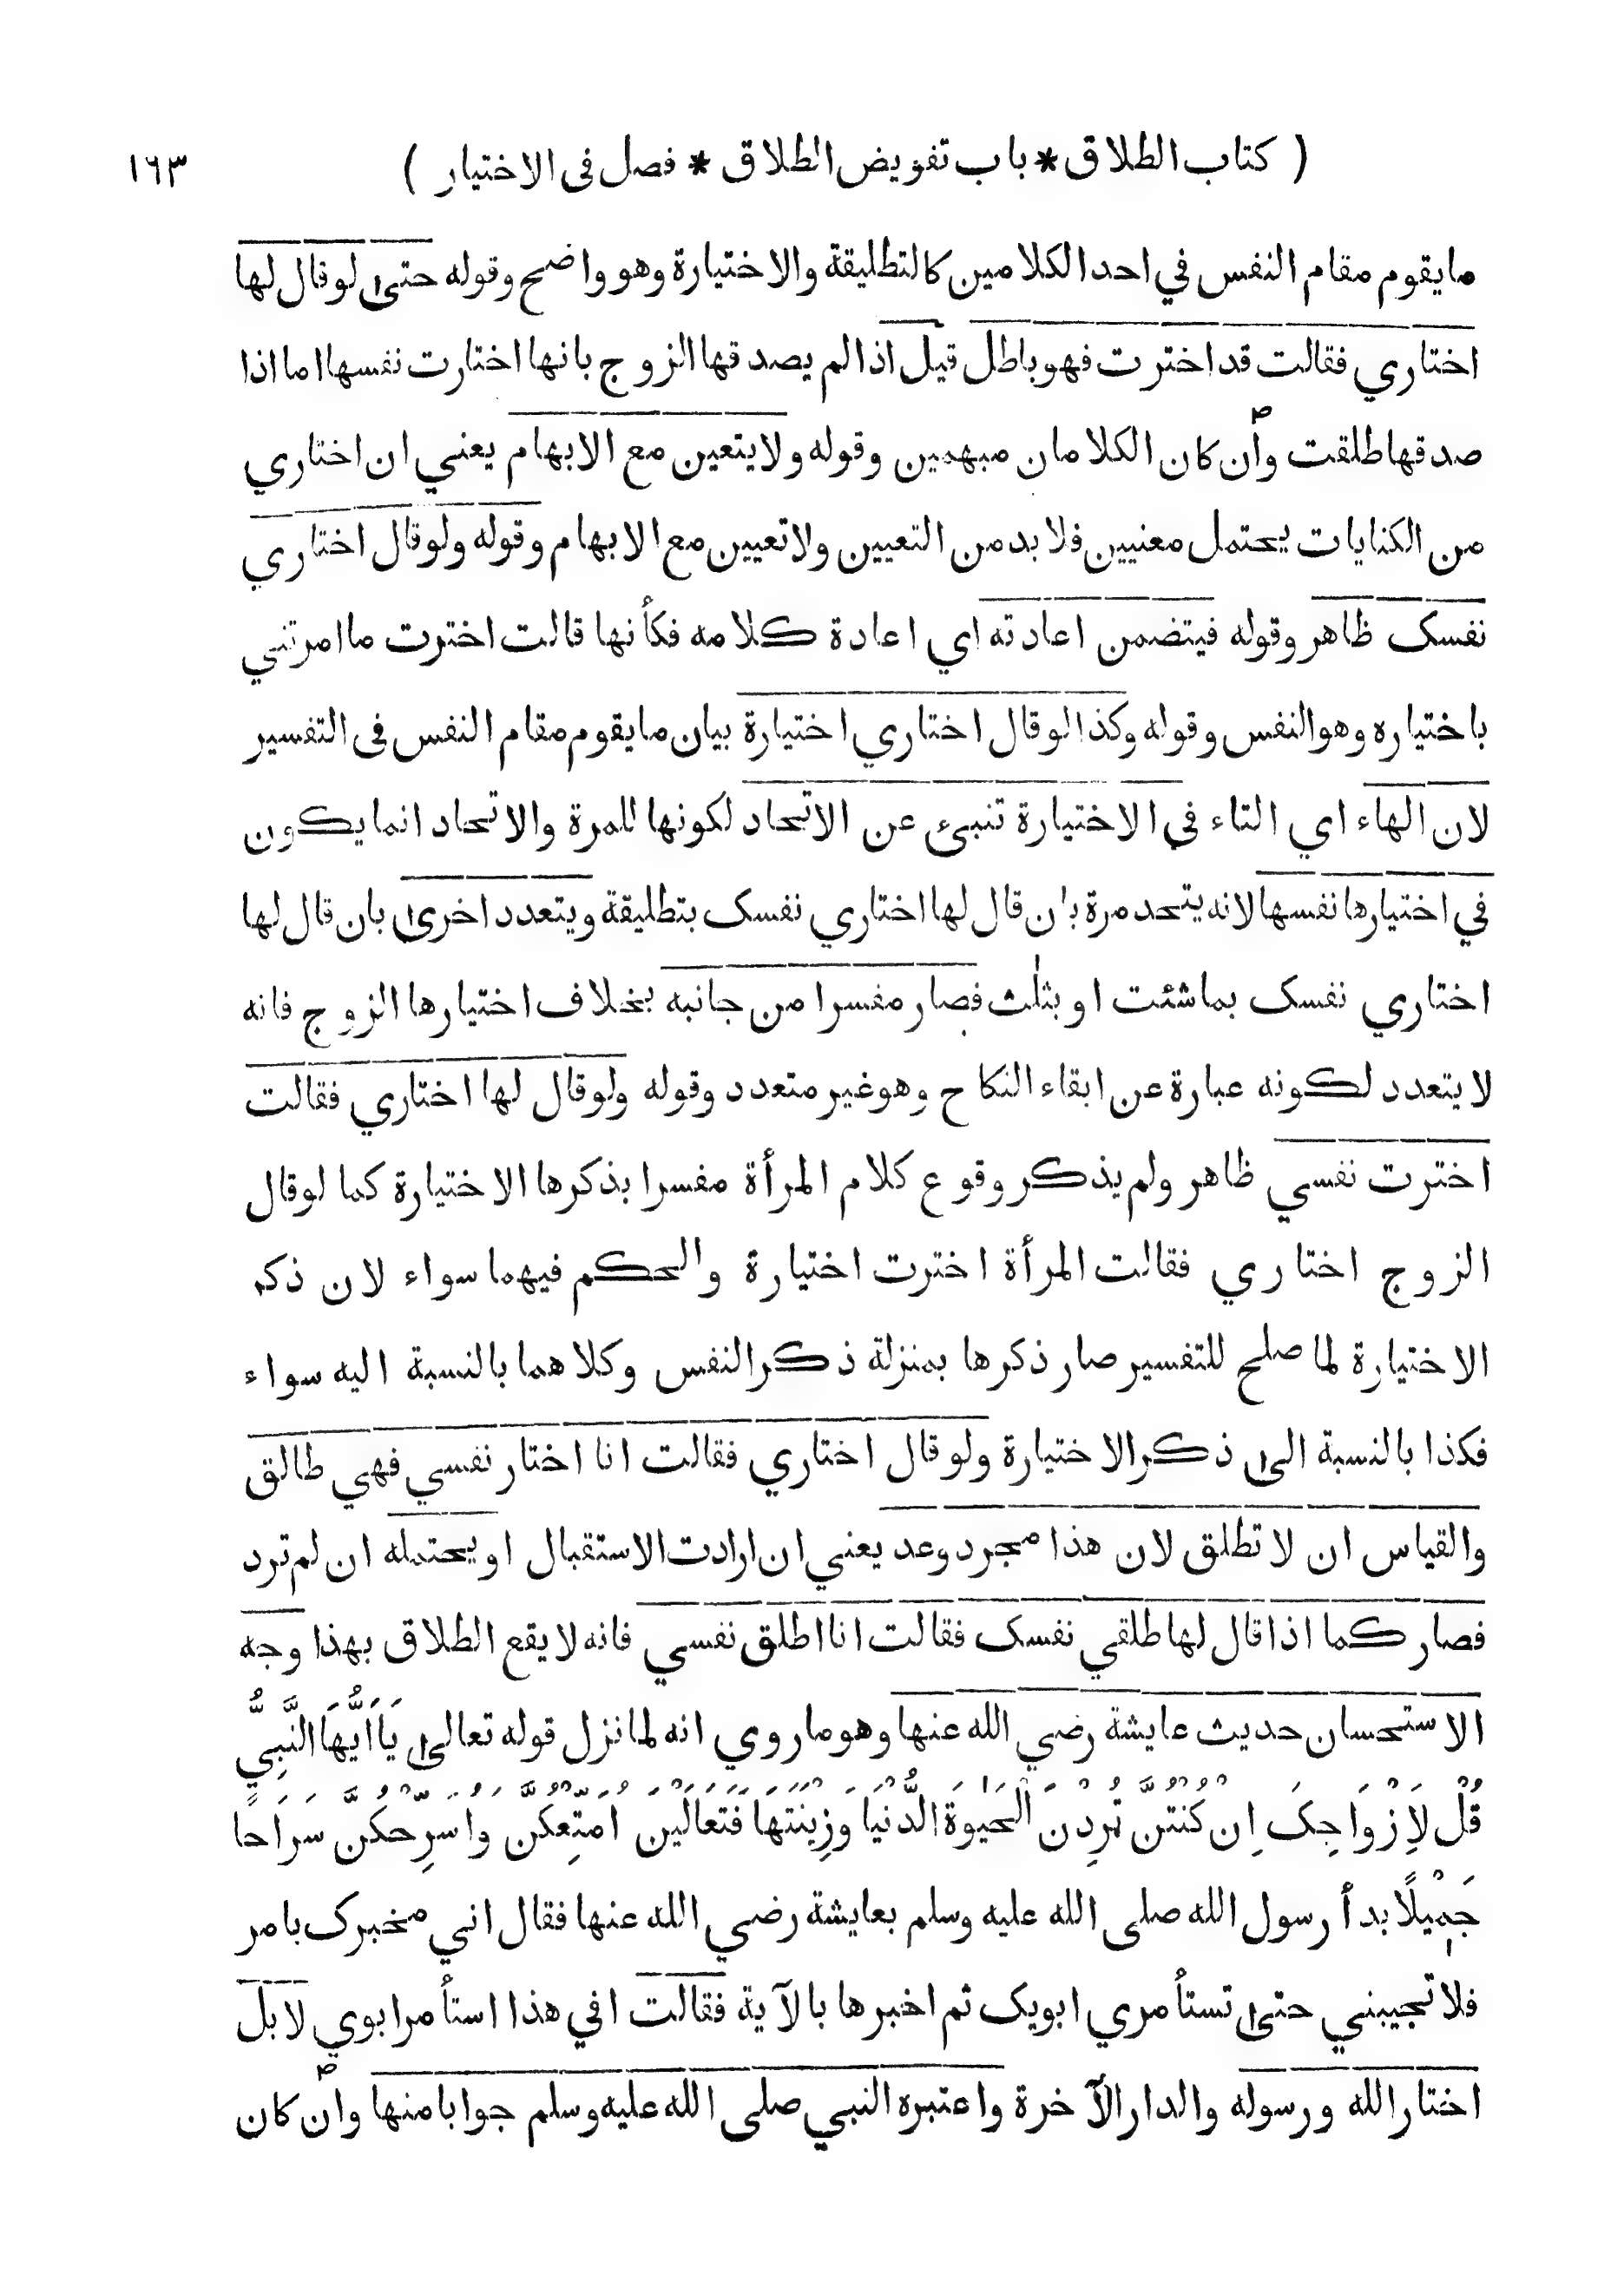 ( كتاب الطلاق * باب تفويض الطلاق * فصل في الاختيار ) ١٦٣
ما يقوم مقام النفس في احد الكلامين كالتطليقة والاختيارة وهو واضح وقوله حتى لو قال لها
اختاري فقالت قد اخترت فهو باطل قيل اذا لم يصدقها الزوج بانها اختارت نفسها اما اذا
صدقها طلقت وان كان الكلامان مبهمين وقوله ولا يتعين مع الابهام يعني ان اختاري
من الكنايات يحتمل معنيين فلا بد من التعيين ولا تعيين مع الابهام وقوله ولو قال اختاري
نفسك ظاهر وقوله فيتضمن اعادته اي اعادة كلامه فكأنها قالت اخترت ما امرتني
باختياره وهو النفس وقوله وكذا لو قال اختاري اختيارة بيان ما يقوم مقام النفس في التفسير
لان الهاء اي التاء في الاختيارة تنبئ عن الاتحاد لكونها للمرة والاتحاد انما يكون
في اختيارها نفسها لانه يتحد مرة بان قال لها اختاري نفسك بتطليقة ويتعدد اخرى بان قال لها
اختاري نفسك بما شئت او بثلث فصار مفسرا من جانبه بخلاف اختيارها الزوج فانه
لا يتعدد لكونه عبارة عن ابقاء النكاح وهو غير متعدد وقوله ولو قال لها اختاري فقالت
اخترت نفسي ظاهر ولم يذكر وقوع كلام المرأة مفسرا بذكرها الاختيارة كما لو قال
الزوج اختاري فقالت المرأة اخترت اختيارة والحكم فيهما سواء لان ذكر
الاختيارة لما صلح للتفسير صار ذكرها بمنزلة ذكر النفس وكلاهما بالنسبة اليه سواء
فكذا بالنسبة الى ذكر الاختيارة ولو قال اختاري فقالت انا اختار نفسي فهي طالق
والقياس ان لا تطلق لان هذا مجرد وعد يعني ان ارادت الاستقبال او يحتمله ان لم ترد
فصار كما اذا قال لها طلقي نفسك فقالت انا اطلق نفسي فانه لا يقع الطلاق بهذا وجه
الاستحسان حديث عايشة رضي الله عنها وهو ما روي انه لما نزل قوله تعالى يَا اَيُّهَا النَّبِيُّ
قُلْ لِاَزْوَاجِكَ اِنْ كُنْتُنَّ تُرِدْنَ الْحَيٰوةَ الدُّنْيَا وَزِيْنَتَهَا فَتَعَالَيْنَ اُمَتِّعْكُنَّ وَاُسَرِّحْكُنَّ سَرَاحًا
جَمِيْلًا بدأ رسول الله صلى الله عليه وسلم بعايشة رضي الله عنها فقال اني مخبرك بامر
فلا تجيبيني حتى تستأمري ابويك ثم اخبرها بالآية فقالت افي هذا استأمر ابوي لا بل
اختار الله ورسوله والدار الآخرة واعتبره النبي صلى الله عليه وسلم جوابا منها وان كان